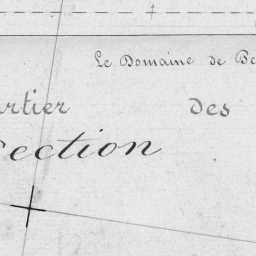 Le Domaine de Be
artier des
ection